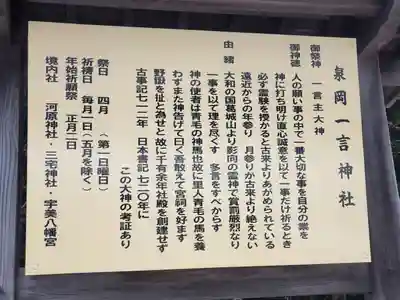 泉岡一言神社
御祭神 一言主大神
御神徳 人の願い事の中で一番大切な事を自分の業を
神に打ち明け直心誠意を以て一事だけ祈るとき
必ず霊験を授かると古来よりあがめられている
遠近からの年参り 月参りか古来より絶えない
由緒 大和の国葛城山より影向の霊神で賞罰厳烈なり
一事を以て理を尽くす 多言をすべからず
神の使者は青毛の神馬也故に里人青毛の馬を養
わずまた神告げて曰く吾敢えて宮祠を好まず
野臥を扯と為せと故に千有余年社殿を創建せず
古事記七一二年 日本書記七二〇年に
この大神の考証あり
祭日 四月 (第一日曜日)
祈祷日 毎月一日(五月を除く)
年始祈願祭 正月二日
境内社 河原神社・三宅神社・宇美八幡宮